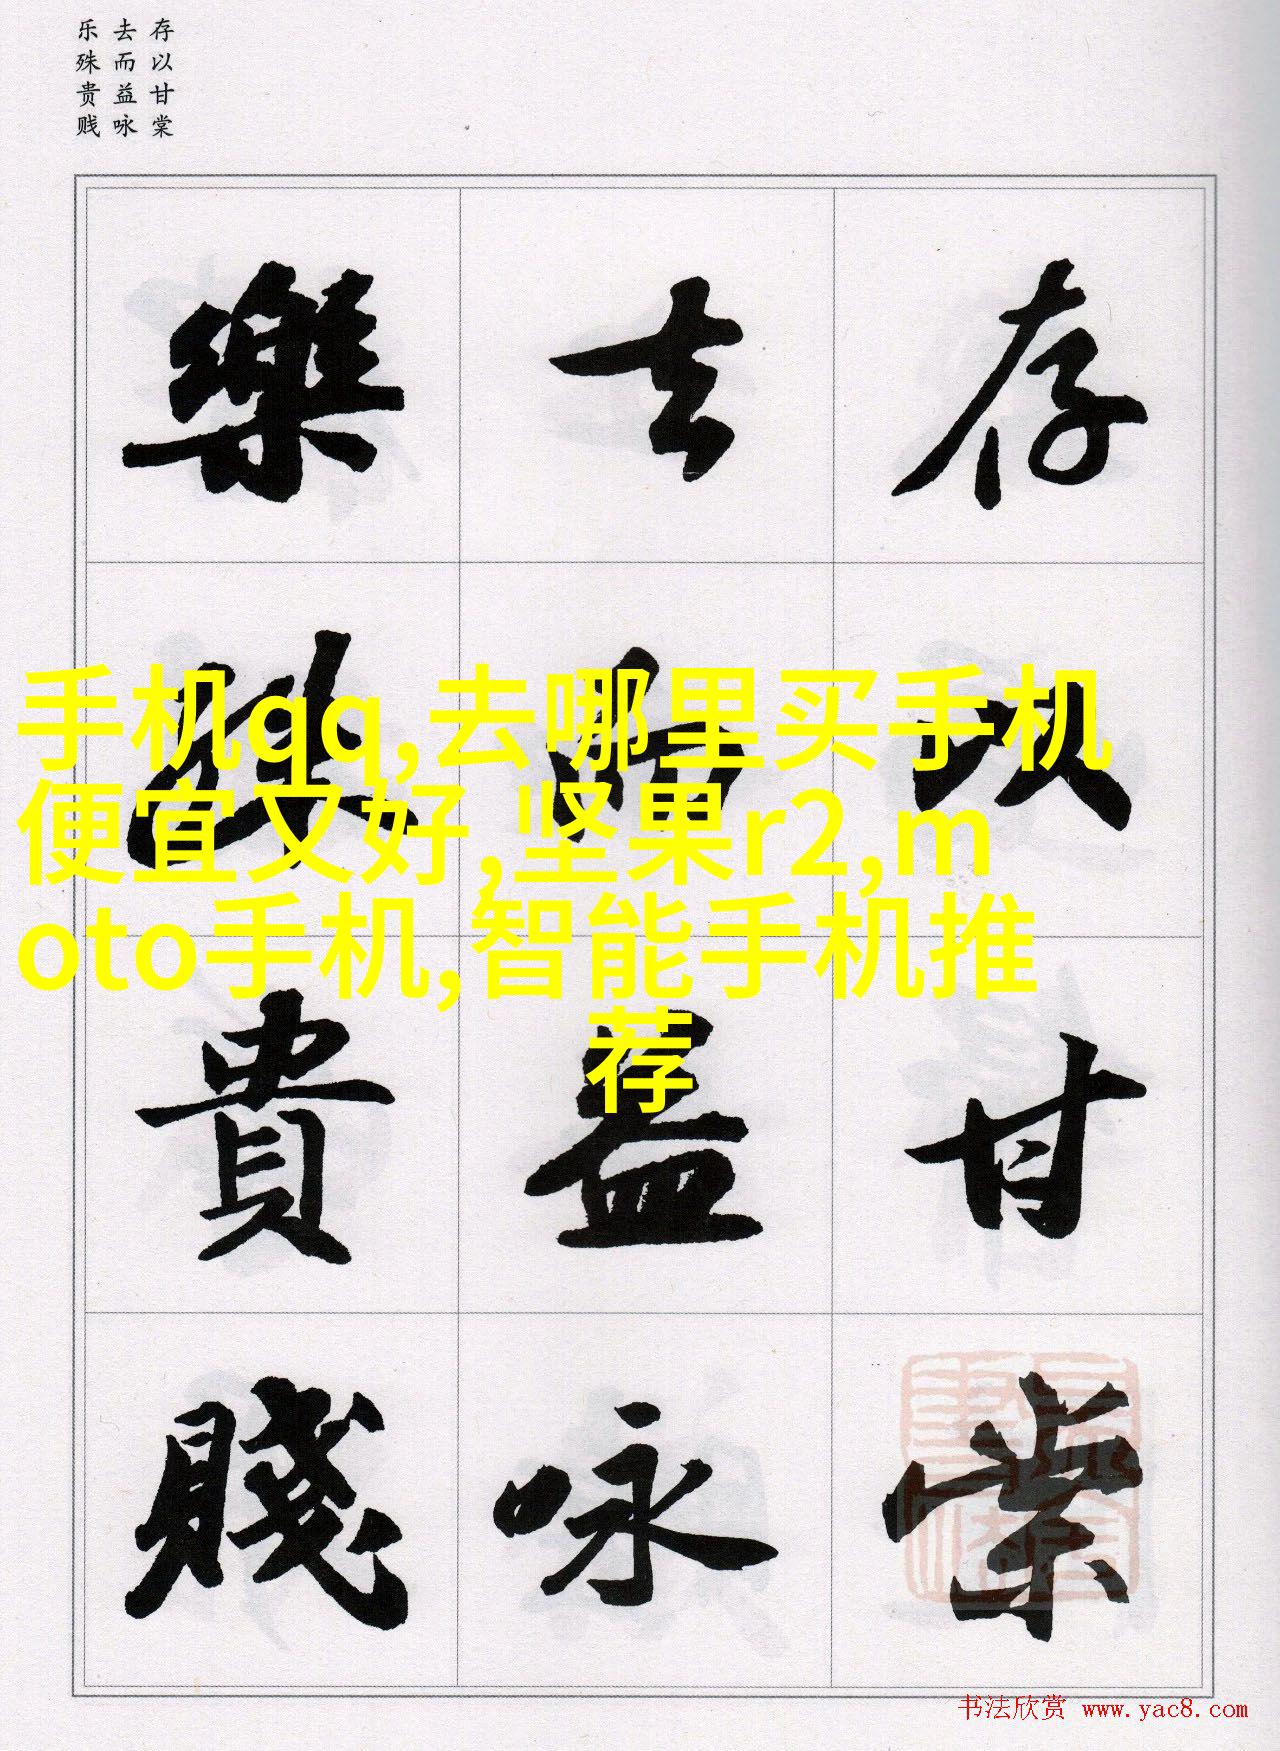 存以甘棠
去而益咏
乐殊贵贱
存以甘棠
去而益咏
樂殊貴賤
手机qq,去哪里买手机
便宜又好,坚果r2,m
oto手机,智能手机推
荐
书法欣赏 www.yac8.com